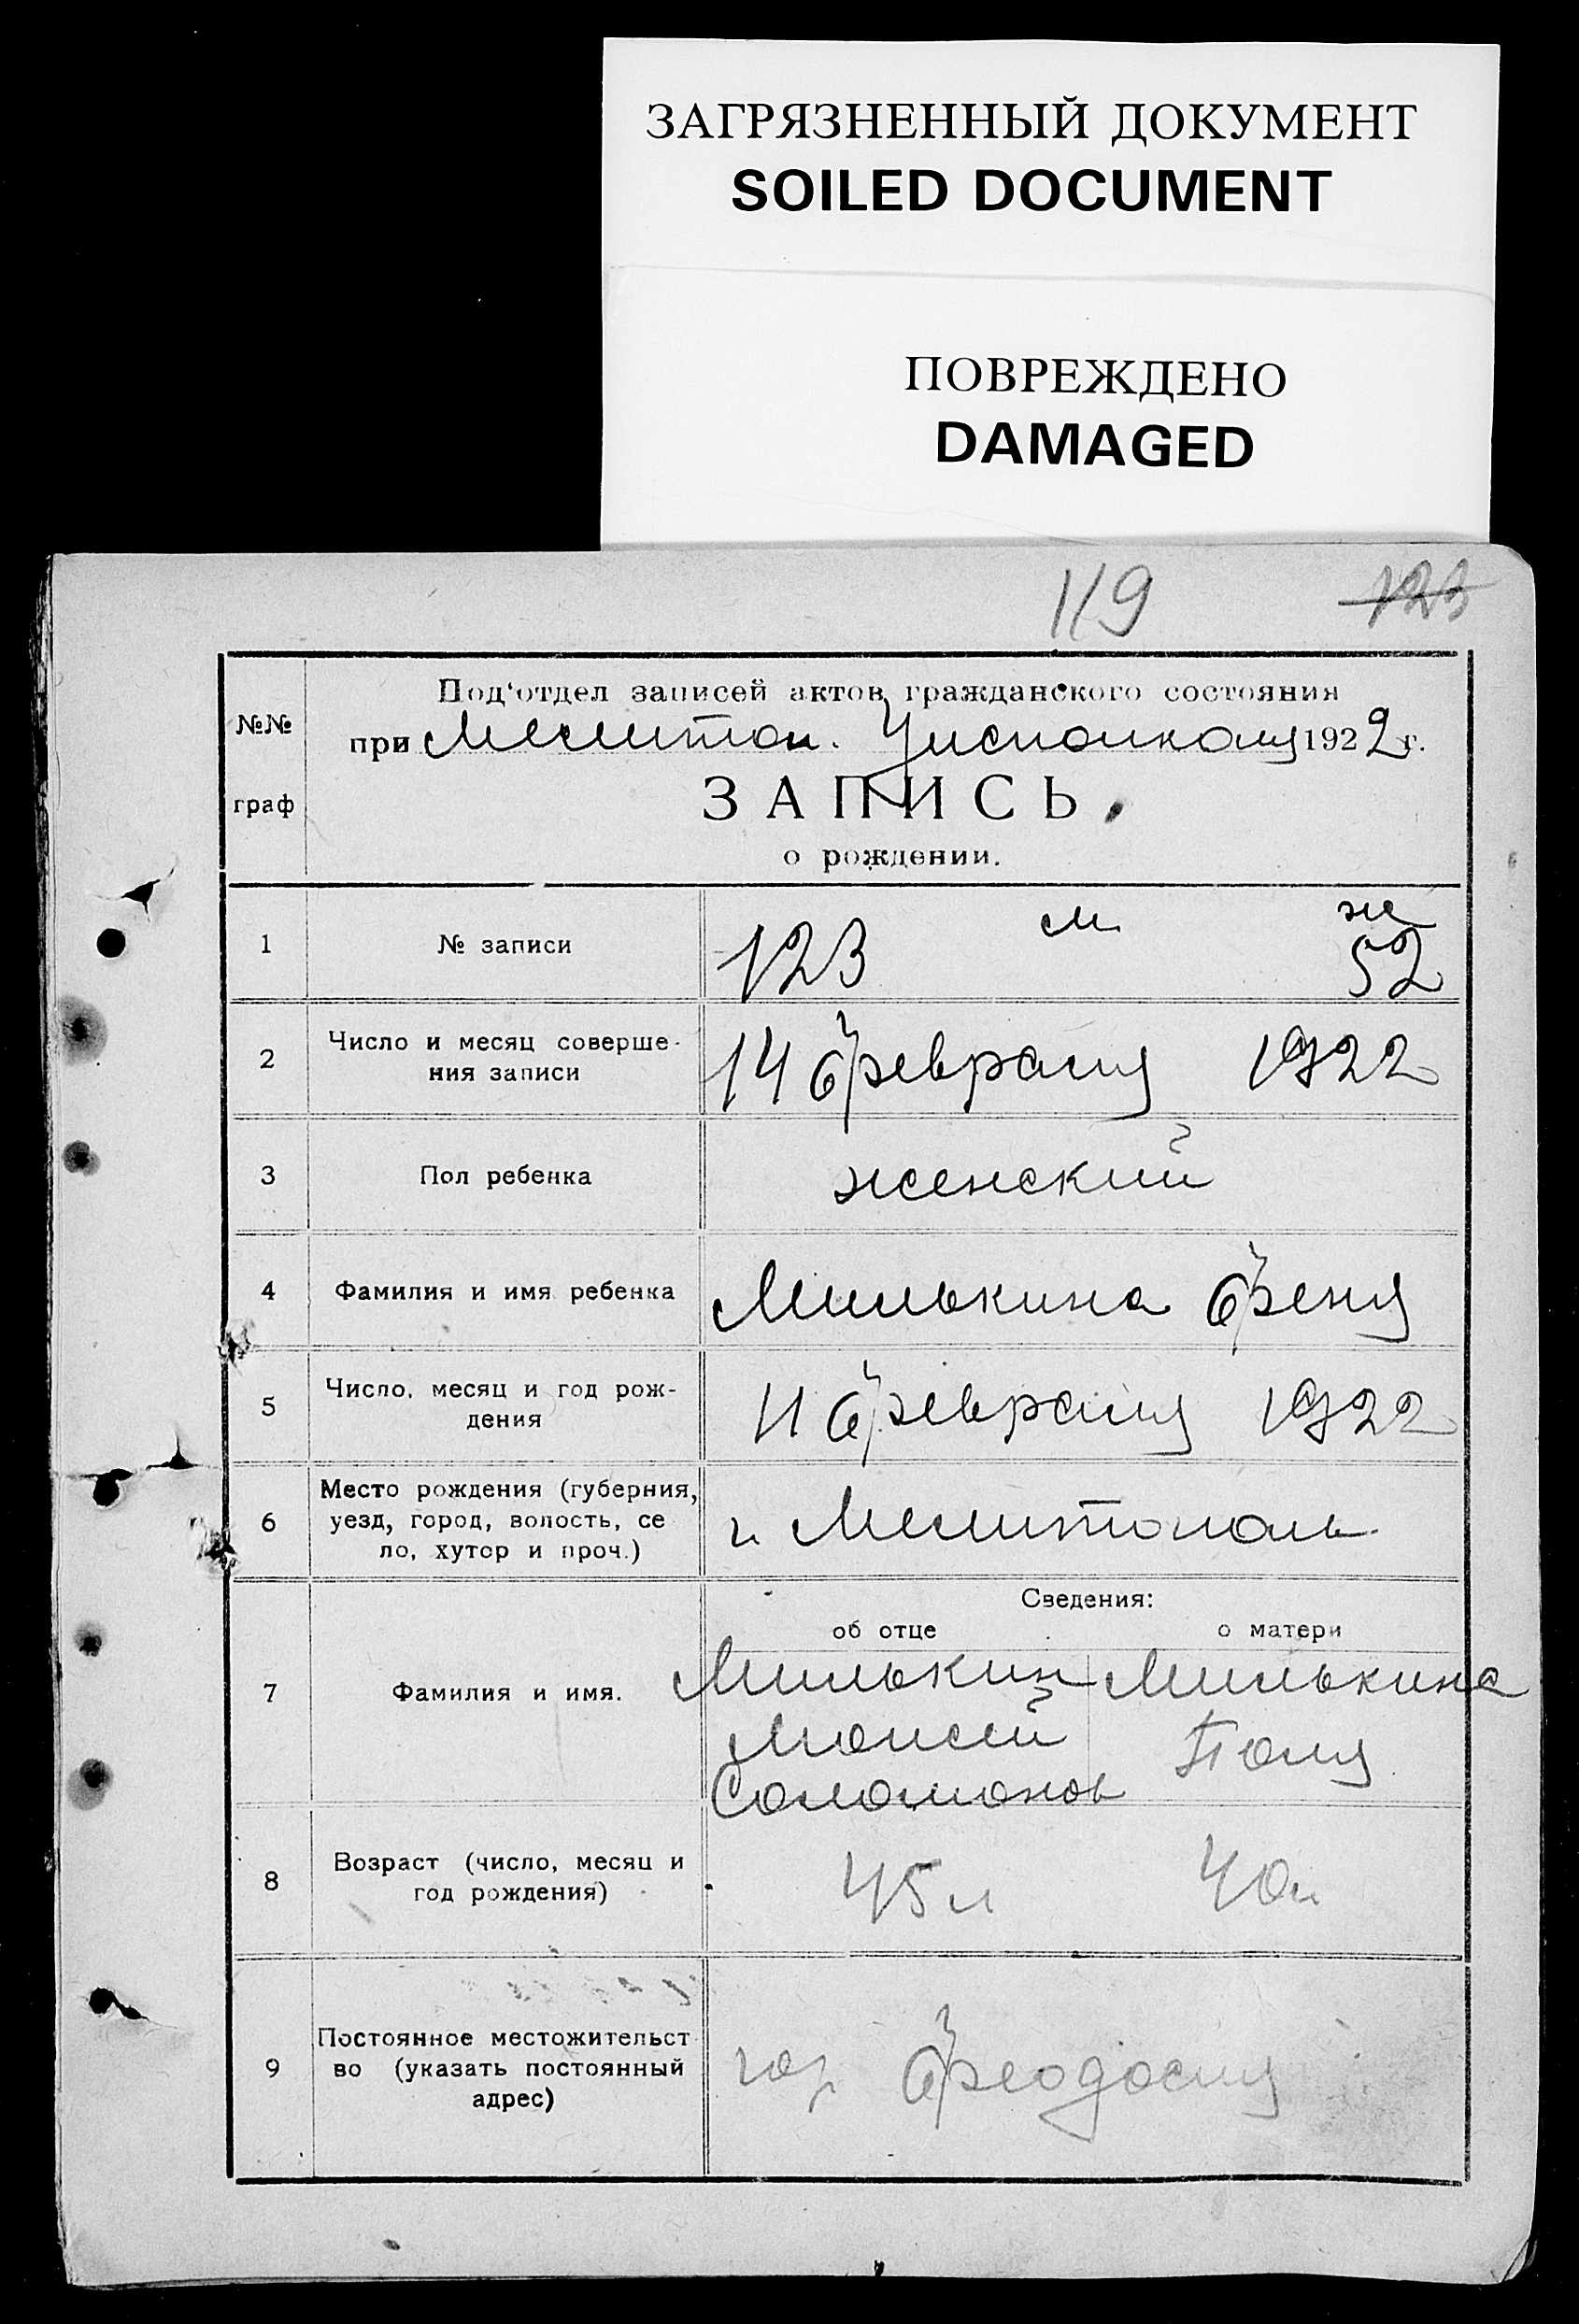 ЗАГРЯЗНЕННЫЙ ДОКУМЕНТ
SOILED DOCUMENT
ПОВРЕЖДЕНО
DAMAGED
119 123
№№ граф
Под'отдел записей актов гражданского состояния
при Мелитоп. Уисполкому 1922 г.
ЗАПИСЬ
о рождении.
м ж
1 № записи 123 52
2 Число и месяц соверше-
ния записи 14 февраля 1922
3 Пол ребенка женский
4 Фамилия и имя ребенка Милькина Феня
5 Число, месяц и год рож-
дения 11 февраля 1922
6 Место рождения (губерния,
уезд, город, волость, се
ло, хутор и проч.) г. Мелитополь
Сведения:
об отце о матери
7 Фамилия и имя. Милькин Милькина
Моисей Поля
Соломонов
8 Возраст (число, месяц и
год рождения) 45 л 40 л
9 Постоянное местожительст
во (указать постоянный
адрес) гор Феодосия